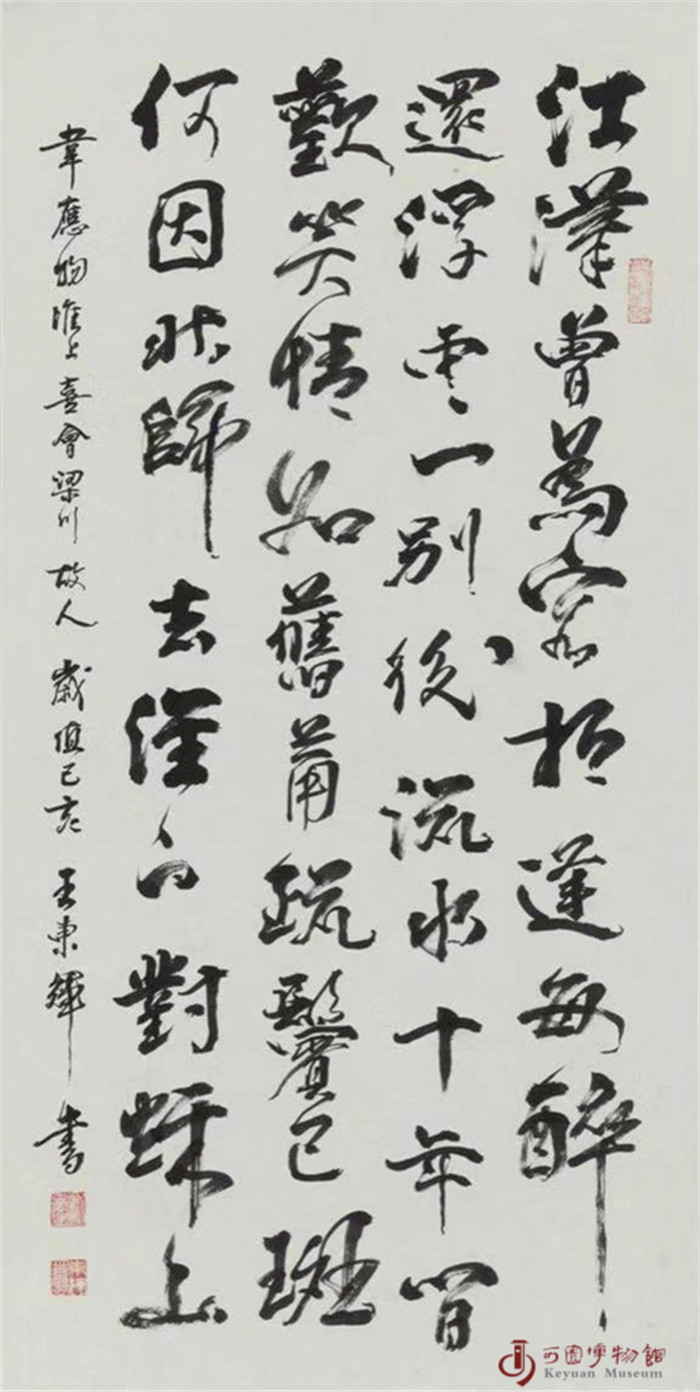 江漢曾爲客相逢每醉
還浮雲一別後流水十年間
歡笑情如舊蕭疏鬢已斑
何因北歸去淮上對秋山
韋應物淮上喜會梁川故人 歲值己亥 王東輝書
可園博物館
Keyuan Museum